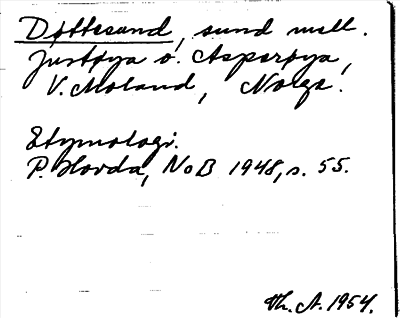 Døttesund, sund mell.
Justøya o. Asparøya,
V. Moland, Norge.
Etymologi.
P. Hovda, NoB 1948, s. 55.
Th. A. 1954.